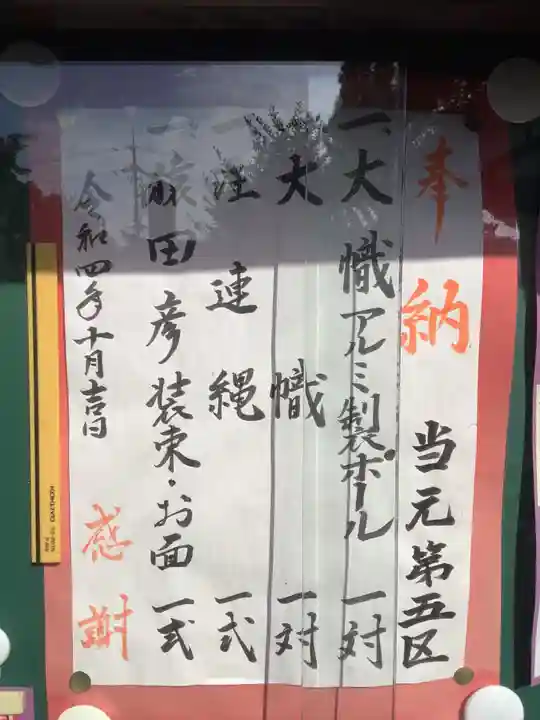 奉納 当元第五区
一大幟アルミ製ポール 一対
一大幟 一対
一注連縄 一式
一猿田彦装束・お面 一式
令和四年十月吉日 感謝
KOKUYO